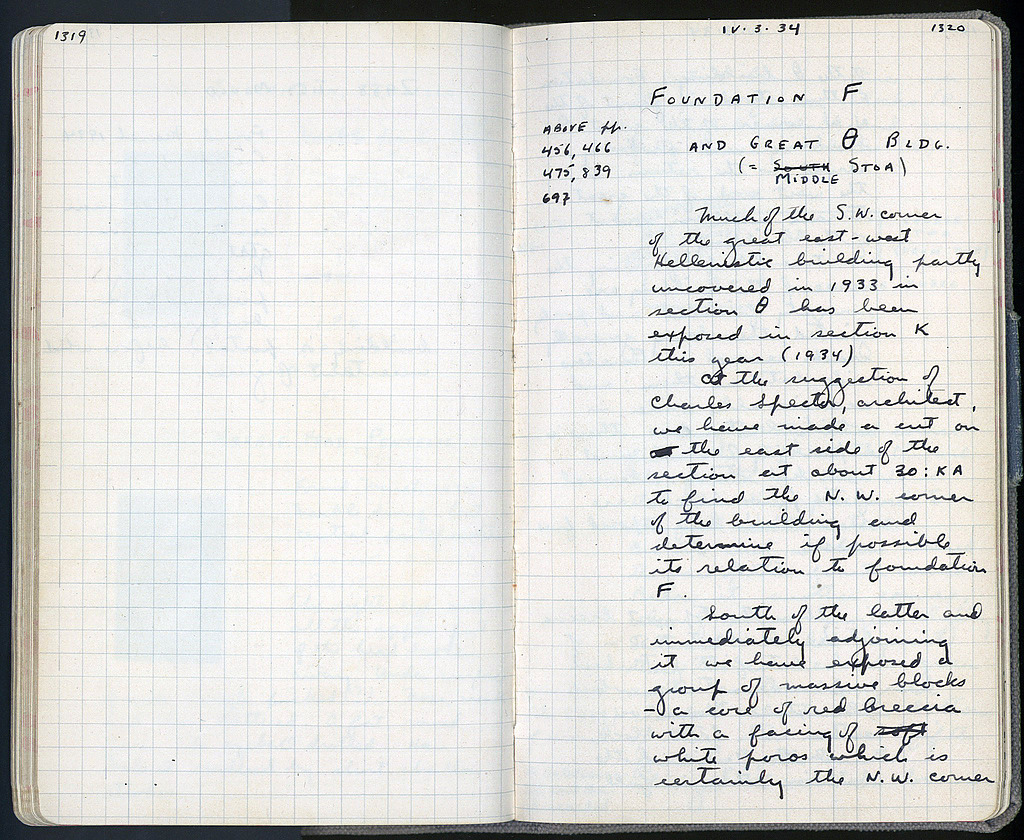 1319
IV. 3. 34
1320
FOUNDATION F
ABOVE pp.
456, 466
475, 839
697
AND GREAT Θ BLDG.
(= SOUTH STOA)
MIDDLE
Much of the S.W. corner
of the great east-west
Hellenistic building partly
uncovered in 1933 in
section Θ has been
exposed in section K
this year (1934)
At the suggestion of
Charles Spector, architect,
we have made a cut on
the east side of the
section at about 30:KA
to find the N.W. corner
of the building and
determine if possible
its relation to foundation
F.
South of the latter and
immediately adjoining
it we have exposed a
group of massive blocks
- a core of red breccia
with a facing of soft
white poros which is
certainly the N.W. corner